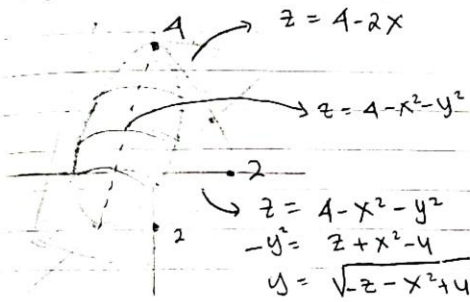 4
z = 4-2x
z = 4-x²-y²
2
2
z = 4-x²-y²
-y² = z+x²-4
y = √-z-x²+4